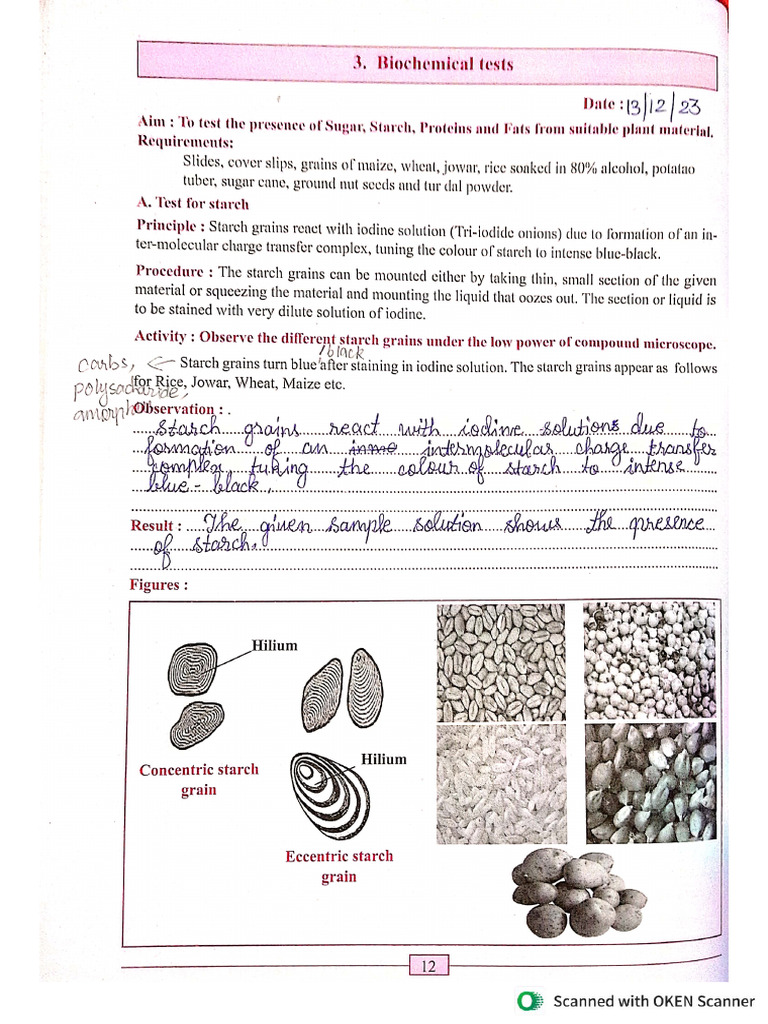 3. Biochemical tests
Date : 13/12/23
Aim : To test the presence of Sugar, Starch, Proteins and Fats from suitable plant material.
Requirements:
Slides, cover slips, grains of maize, wheat, jowar, rice soaked in 80% alcohol, potatao
tuber, sugar cane, ground nut seeds and tur dal powder.
A. Test for starch
Principle : Starch grains react with iodine solution (Tri-iodide onions) due to formation of an in-
ter-molecular charge transfer complex, tuning the colour of starch to intense blue-black.
Procedure : The starch grains can be mounted either by taking thin, small section of the given
material or squeezing the material and mounting the liquid that oozes out. The section or liquid is
to be stained with very dilute solution of iodine.
Activity : Observe the different starch grains under the low power of compound microscope.
/black
carbs, ← Starch grains turn blue after staining in iodine solution. The starch grains appear as follows
polysacharide, for Rice, Jowar, Wheat, Maize etc.
amorphous Observation : .
Starch grains react with iodine solutions due to
formation of an intermolecular charge transfer
complex, tuking the colour of starch to intense
blue-black,
Result : The given sample solution shows the presence
of starch.
Figures :
Hilium
Concentric starch
grain
Hilium
Eccentric starch
grain
12
Scanned with OKEN Scanner